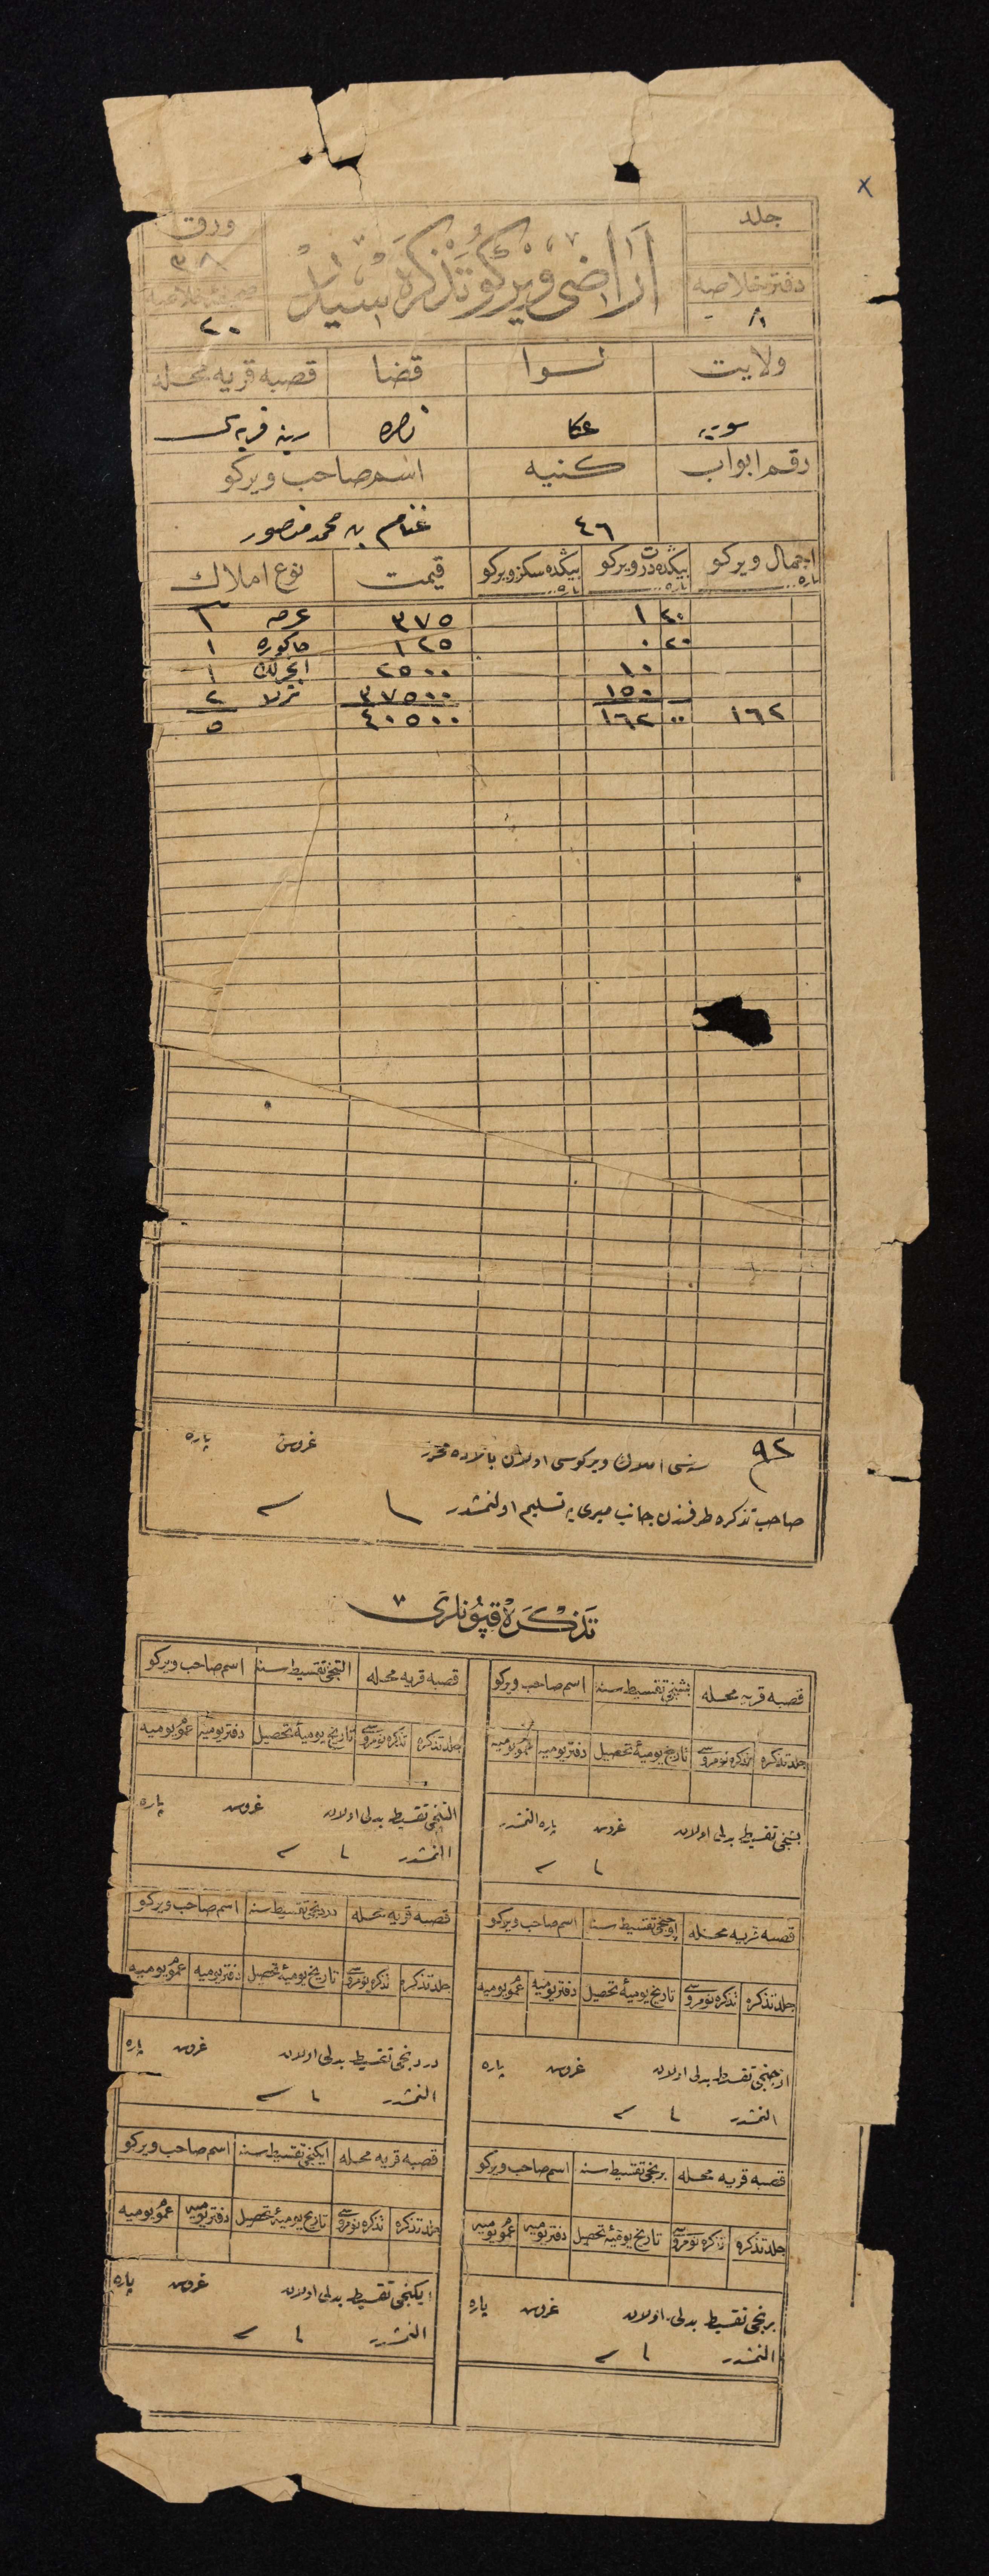 جلد
اراضی ویركو تذكره سیدر
ورق
٣٨
دفتر خلاصه
٨١
صحیفهٔ خلاصه
٢٠
ولایت لوا قضا قصبه قریه محله
سوریه عكا ناصره رینه قریه سی
رقم ابواب كنیه اسم صاحب ویركو
٤٦ غنام بن محمد منصور
اجمال ویركو بیكده درت ویركو بیكده سكز ویركو قیمت نوع املاك
پاره پاره پاره
٢٠ ١ ٣٧٥ عرصه ١
٢٠ ٠ ١٢٥ حاكوره ١
١٠ ٢٥٠٠ انجیرلك ١
١٥٠ ٣٧٥٠٠ ترلا ٢
١٦٢ ٠٠ ١٦٢ ٤٠٥٠٠ ٥
٩٢ سنه سی املاك ویركوسی اولان بالاده محرر غروش پاره
صاحب تذكره طرفندن جانب میری یه تسلیم اولنمشدر
تذكره قپونلری
قصبه قریه محله بشنجی تقسیط سنه اسم صاحب ویركو
جلد تذكره تذكره نومروسی تاریخ یومیهٔ تحصیل دفتر یومیه عمومی یومیه
بشنجی تقسیط بدلی اولان غروش پاره النمشدر
قصبه قریه محله التنجی تقسیط سنه اسم صاحب ویركو
جلد تذكره تذكره نومروسی تاریخ یومیهٔ تحصیل دفتر یومیه عمومی یومیه
التنجی تقسیط بدلی اولان غروش پاره
النمشدر
قصبه قریه محله اوچنجی تقسیط سنه اسم صاحب ویركو
جلد تذكره تذكره نومروسی تاریخ یومیهٔ تحصیل دفتر یومیه عمومی یومیه
اوچنجی تقسیط بدلی اولان غروش پاره
النمشدر
قصبه قریه محله دردنجی تقسیط سنه اسم صاحب ویركو
جلد تذكره تذكره نومروسی تاریخ یومیهٔ تحصیل دفتر یومیه عمومی یومیه
دردنجی تقسیط بدلی اولان غروش پاره
النمشدر
قصبه قریه محله برنجی تقسیط سنه اسم صاحب ویركو
جلد تذكره تذكره نومروسی تاریخ یومیهٔ تحصیل دفتر یومیه عمومی یومیه
برنجی تقسیط بدلی اولان غروش پاره
النمشدر
قصبه قریه محله ایكنجی تقسیط سنه اسم صاحب ویركو
جلد تذكره تذكره نومروسی تاریخ یومیهٔ تحصیل دفتر یومیه عمومی یومیه
ایكنجی تقسیط بدلی اولان غروش پاره
النمشدر